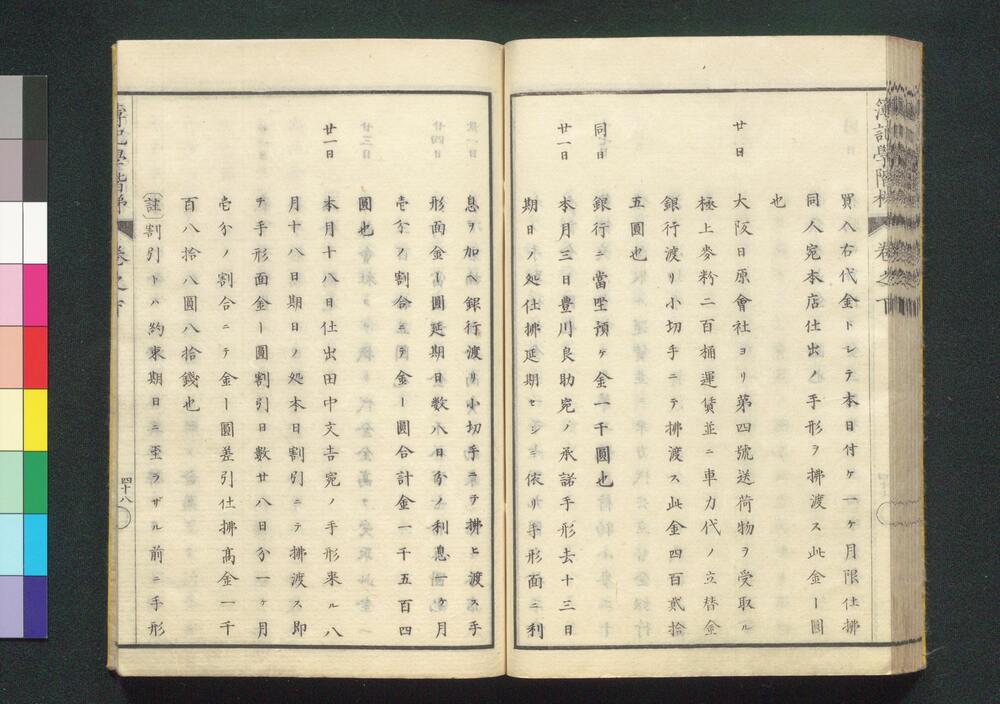 簿記學階梯 卷之下
買入右代金トシテ本日付ケ一ヶ月限仕拂
同人宛本店仕出ノ手形ヲ拂渡ス此金ー圓
也
廿日 大阪日原會社ヨリ第四號送荷物ヲ受取ル
極上麥粉二百桶運賃並ニ車力代ノ立替金
銀行渡リ小切手ニテ拂渡ス此金四百貳拾
五圓也
同日 銀行ニ當坐預ケ金一千圓也
廿一日 本月三日豊川良助宛ノ承諾手形去十三日
期日ノ処仕拂延期セシニ依リ手形面ニ利
息ヲ加ヘ銀行渡リ小切手ニテ拂ヒ渡ス手
形面金ー圓延期日数八日分ノ利息一ヶ月
壱分ノ割合ニテ金ー圓合計金一千五百四
圓也
廿一日 本月十八日仕出田中文吉宛ノ手形来ル八
月十八日期日ノ処本日割引ニテ拂渡ス即
チ手形面金ー圓割引日數廿八日分一ヶ月
壱分ノ割合ニテ金ー圓差引仕拂髙金一千
百八拾八圓八拾錢也
註 割引トハ約束期日ニ至ラザル前ニ手形
簿記學階梯 卷之下 四十八